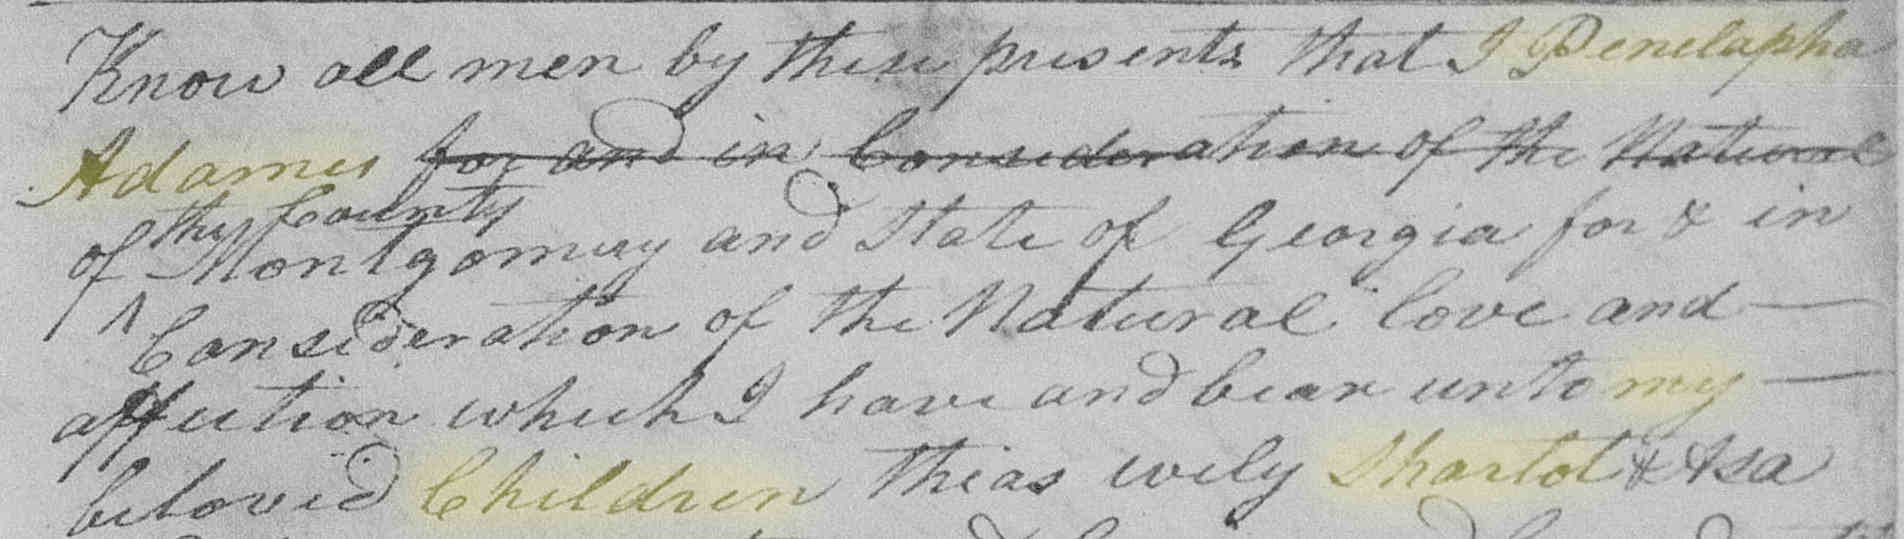 Know all men by these presents that I Penelapha
Adames for and in Consideration of the Natural
the County
of Montgomery and State of Georgia for & in
Consideration of the Natural love and
affection which I have and bear unto my
beloved Children thias wily Sharlot & Asa